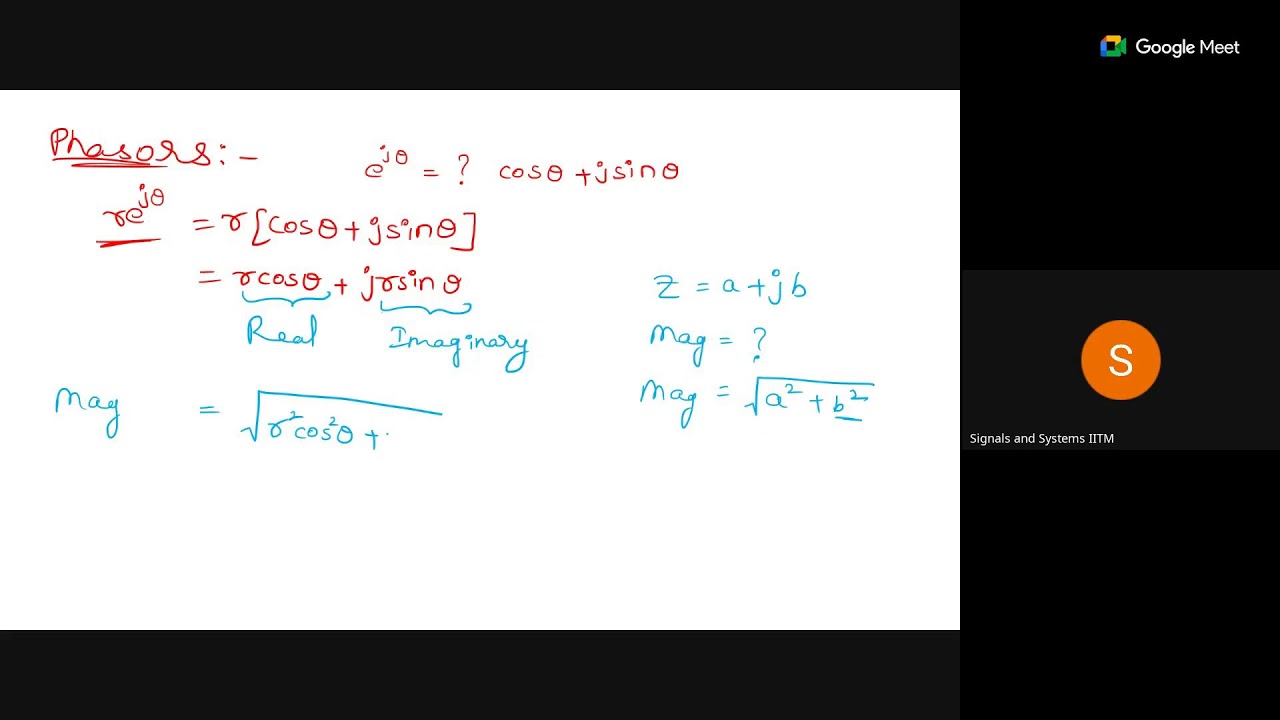 Google Meet
Phasors:-
e^{jθ} = ? cosθ + jsinθ
re^{jθ} = r[cosθ + jsinθ]
= rcosθ + jrsinθ
Real Imaginary
Mag = √(r²cos²θ +
Z = a + jb
Mag = ?
Mag = √(a² + b²)
S
Signals and Systems IITM